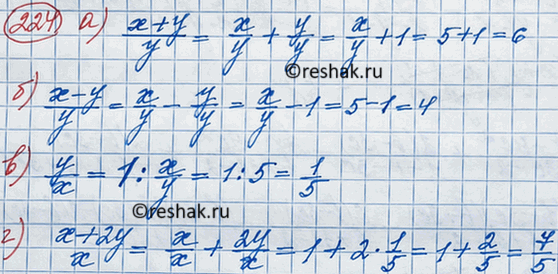 224 а) (x+y)/y = x/y + y/y = x/y + 1 = 5+1 = 6
©reshak.ru
б) (x-y)/y = x/y - y/y = x/y - 1 = 5-1 = 4
в) y/x = 1 : x/y = 1 : 5 = 1/5
©reshak.ru
г) (x+2y)/x = x/x + 2y/x = 1 + 2·1/5 = 1 + 2/5 = 7/5